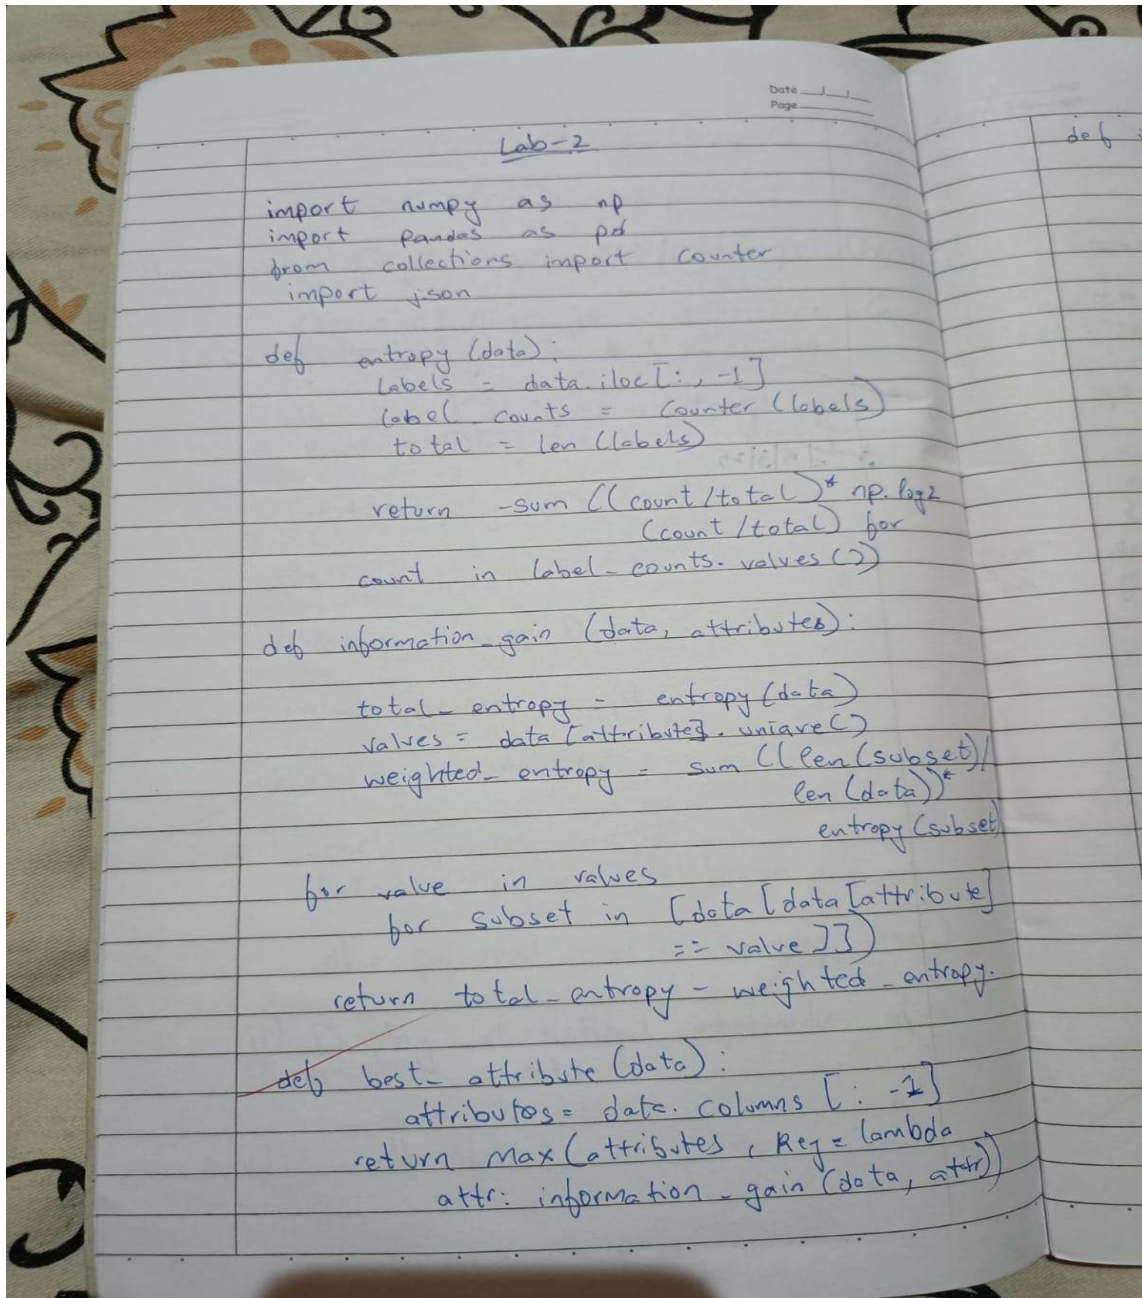 Date __/__/__
Page ______
Lab-2
import numpy as np
import Pandas as pd
from collections import Counter
import json
def entropy (data):
Labels = data.iloc[:, -1]
label_counts = Counter (labels)
total = len (labels)
return -sum ((count/total)* np.log2
(count/total) for
count in label_counts.values())
def information_gain (data, attributes):
total_entropy = entropy (data)
values = data [attribute]. uniave()
weighted_entropy = sum ((len(subset)/
len (data))*
entropy (subset)
for value in values
for subset in [data[data[attribute]
== value]])
return total_entropy - weighted_entropy.
def best_attribute (data):
attributes = data. columns [: -1]
return max (attributes, Key = lambda
attr: information_gain (data, attr))
def